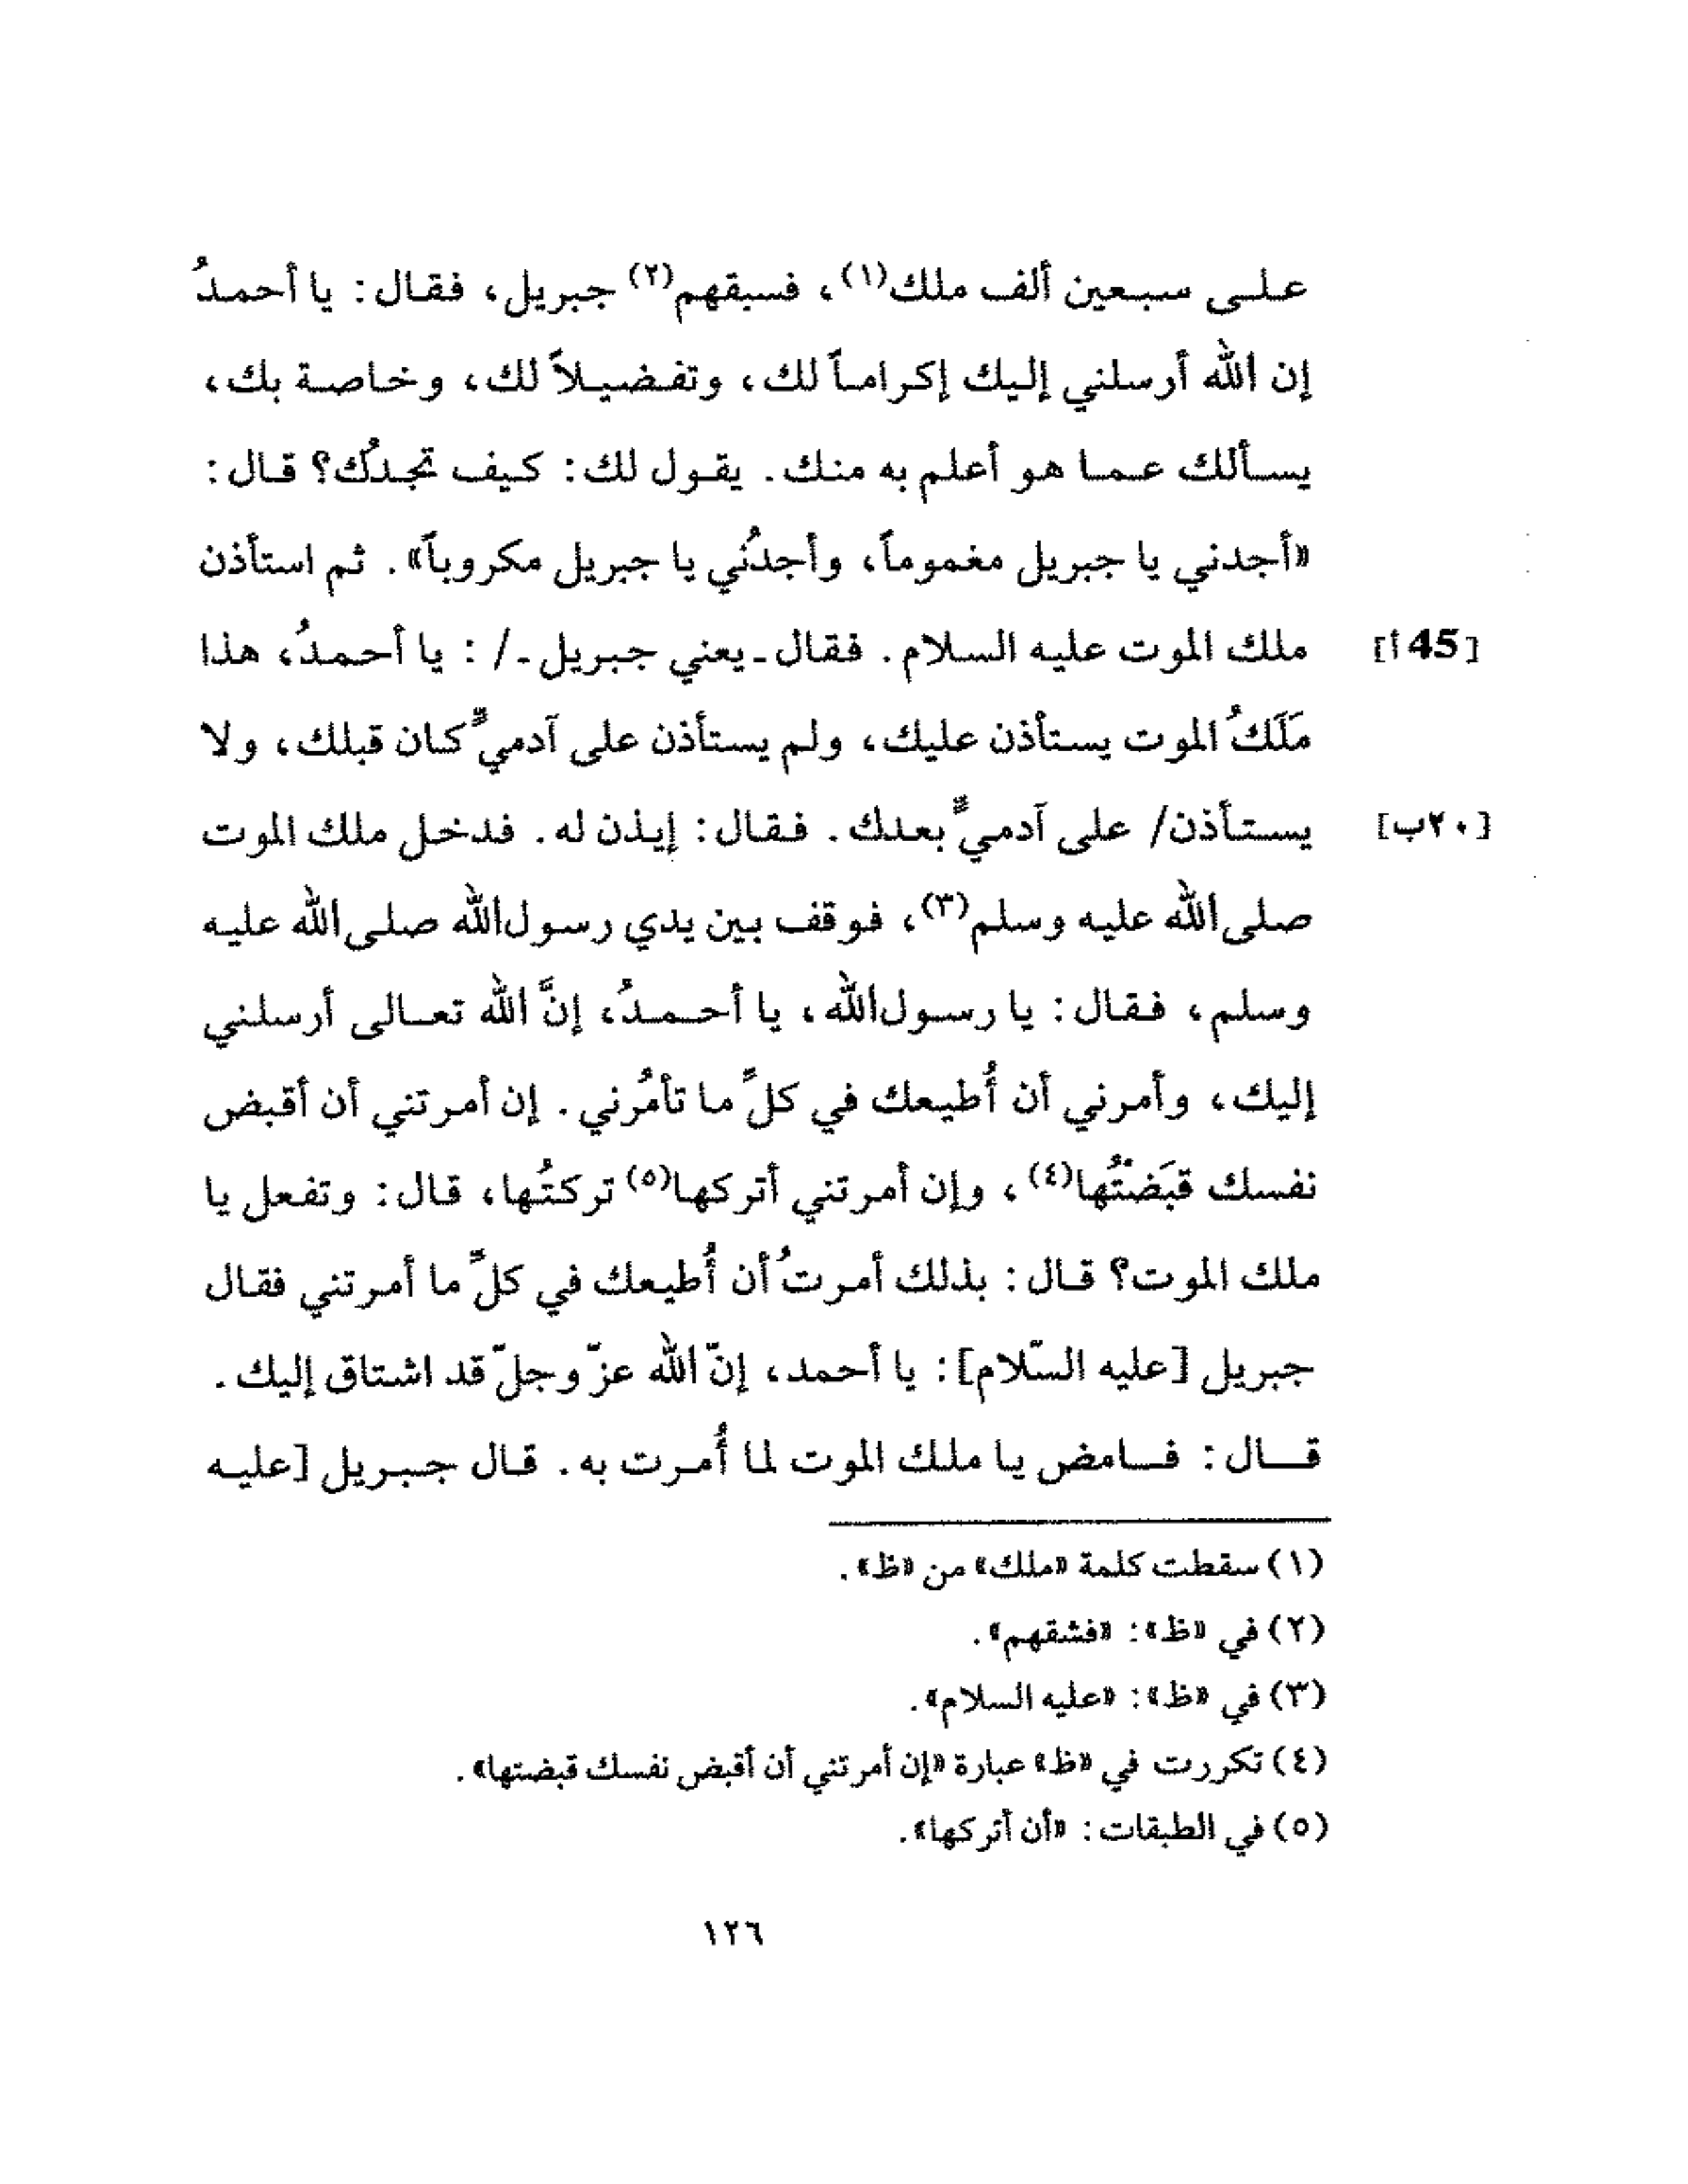 على سبعين ألف ملك(١)، فسبقهم(٢) جبريل، فقال: يا أحمدُ
إن الله أرسلني إليك إكراماً لك، وتفضيلاً لك، وخاصة بك،
يسألك عما هو أعلم به منك. يقول لك: كيف تجدُك؟ قال:
«أجدني يا جبريل مغموماً، وأجدُني يا جبريل مكروباً». ثم استأذن
[45أ] ملك الموت عليه السلام. فقال ـ يعني جبريل ـ/ : يا أحمدُ، هذا
مَلَكُ الموت يستأذن عليك، ولم يستأذن على آدميٍّ كان قبلك، ولا
[٢٠ب] يستأذن/ على آدميٍّ بعدك. فقال: إيذن له. فدخل ملك الموت
صلى الله عليه وسلم(٣)، فوقف بين يدي رسول الله صلى الله عليه
وسلم، فقال: يا رسول الله، يا أحمدُ، إنَّ الله تعالى أرسلني
إليك، وأمرني أن أُطيعك في كلِّ ما تأمُرني. إن أمرتني أن أقبض
نفسك قبَضْتُها(٤)، وإن أمرتني أتركها(٥) تركتُها، قال: وتفعل يا
ملك الموت؟ قال: بذلك أمرتُ أن أُطيعك في كلِّ ما أمرتني فقال
جبريل [عليه السّلام]: يا أحمد، إنّ الله عزّ وجلّ قد اشتاق إليك.
قال: فامض يا ملك الموت لما أُمرت به. قال جبريل [عليه
(١) سقطت كلمة «ملك» من «ظ».
(٢) في «ظ»: «فشقهم».
(٣) في «ظ»: «عليه السلام».
(٤) تكررت في «ظ» عبارة «إن أمرتني أن أقبض نفسك قبضتها».
(٥) في الطبقات: «أن أتركها».
١٢٦